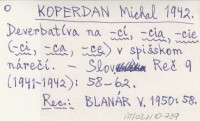 KOPERDAN Michal 1942.
Deverbatíva na -cí, -cia, -cie
(-ci, -ca, -ce) v spišskom
nárečí. – Slov Reč 9
(1941-1942): 58-62.
Rec.: BLANÁR V. 1950: 58.